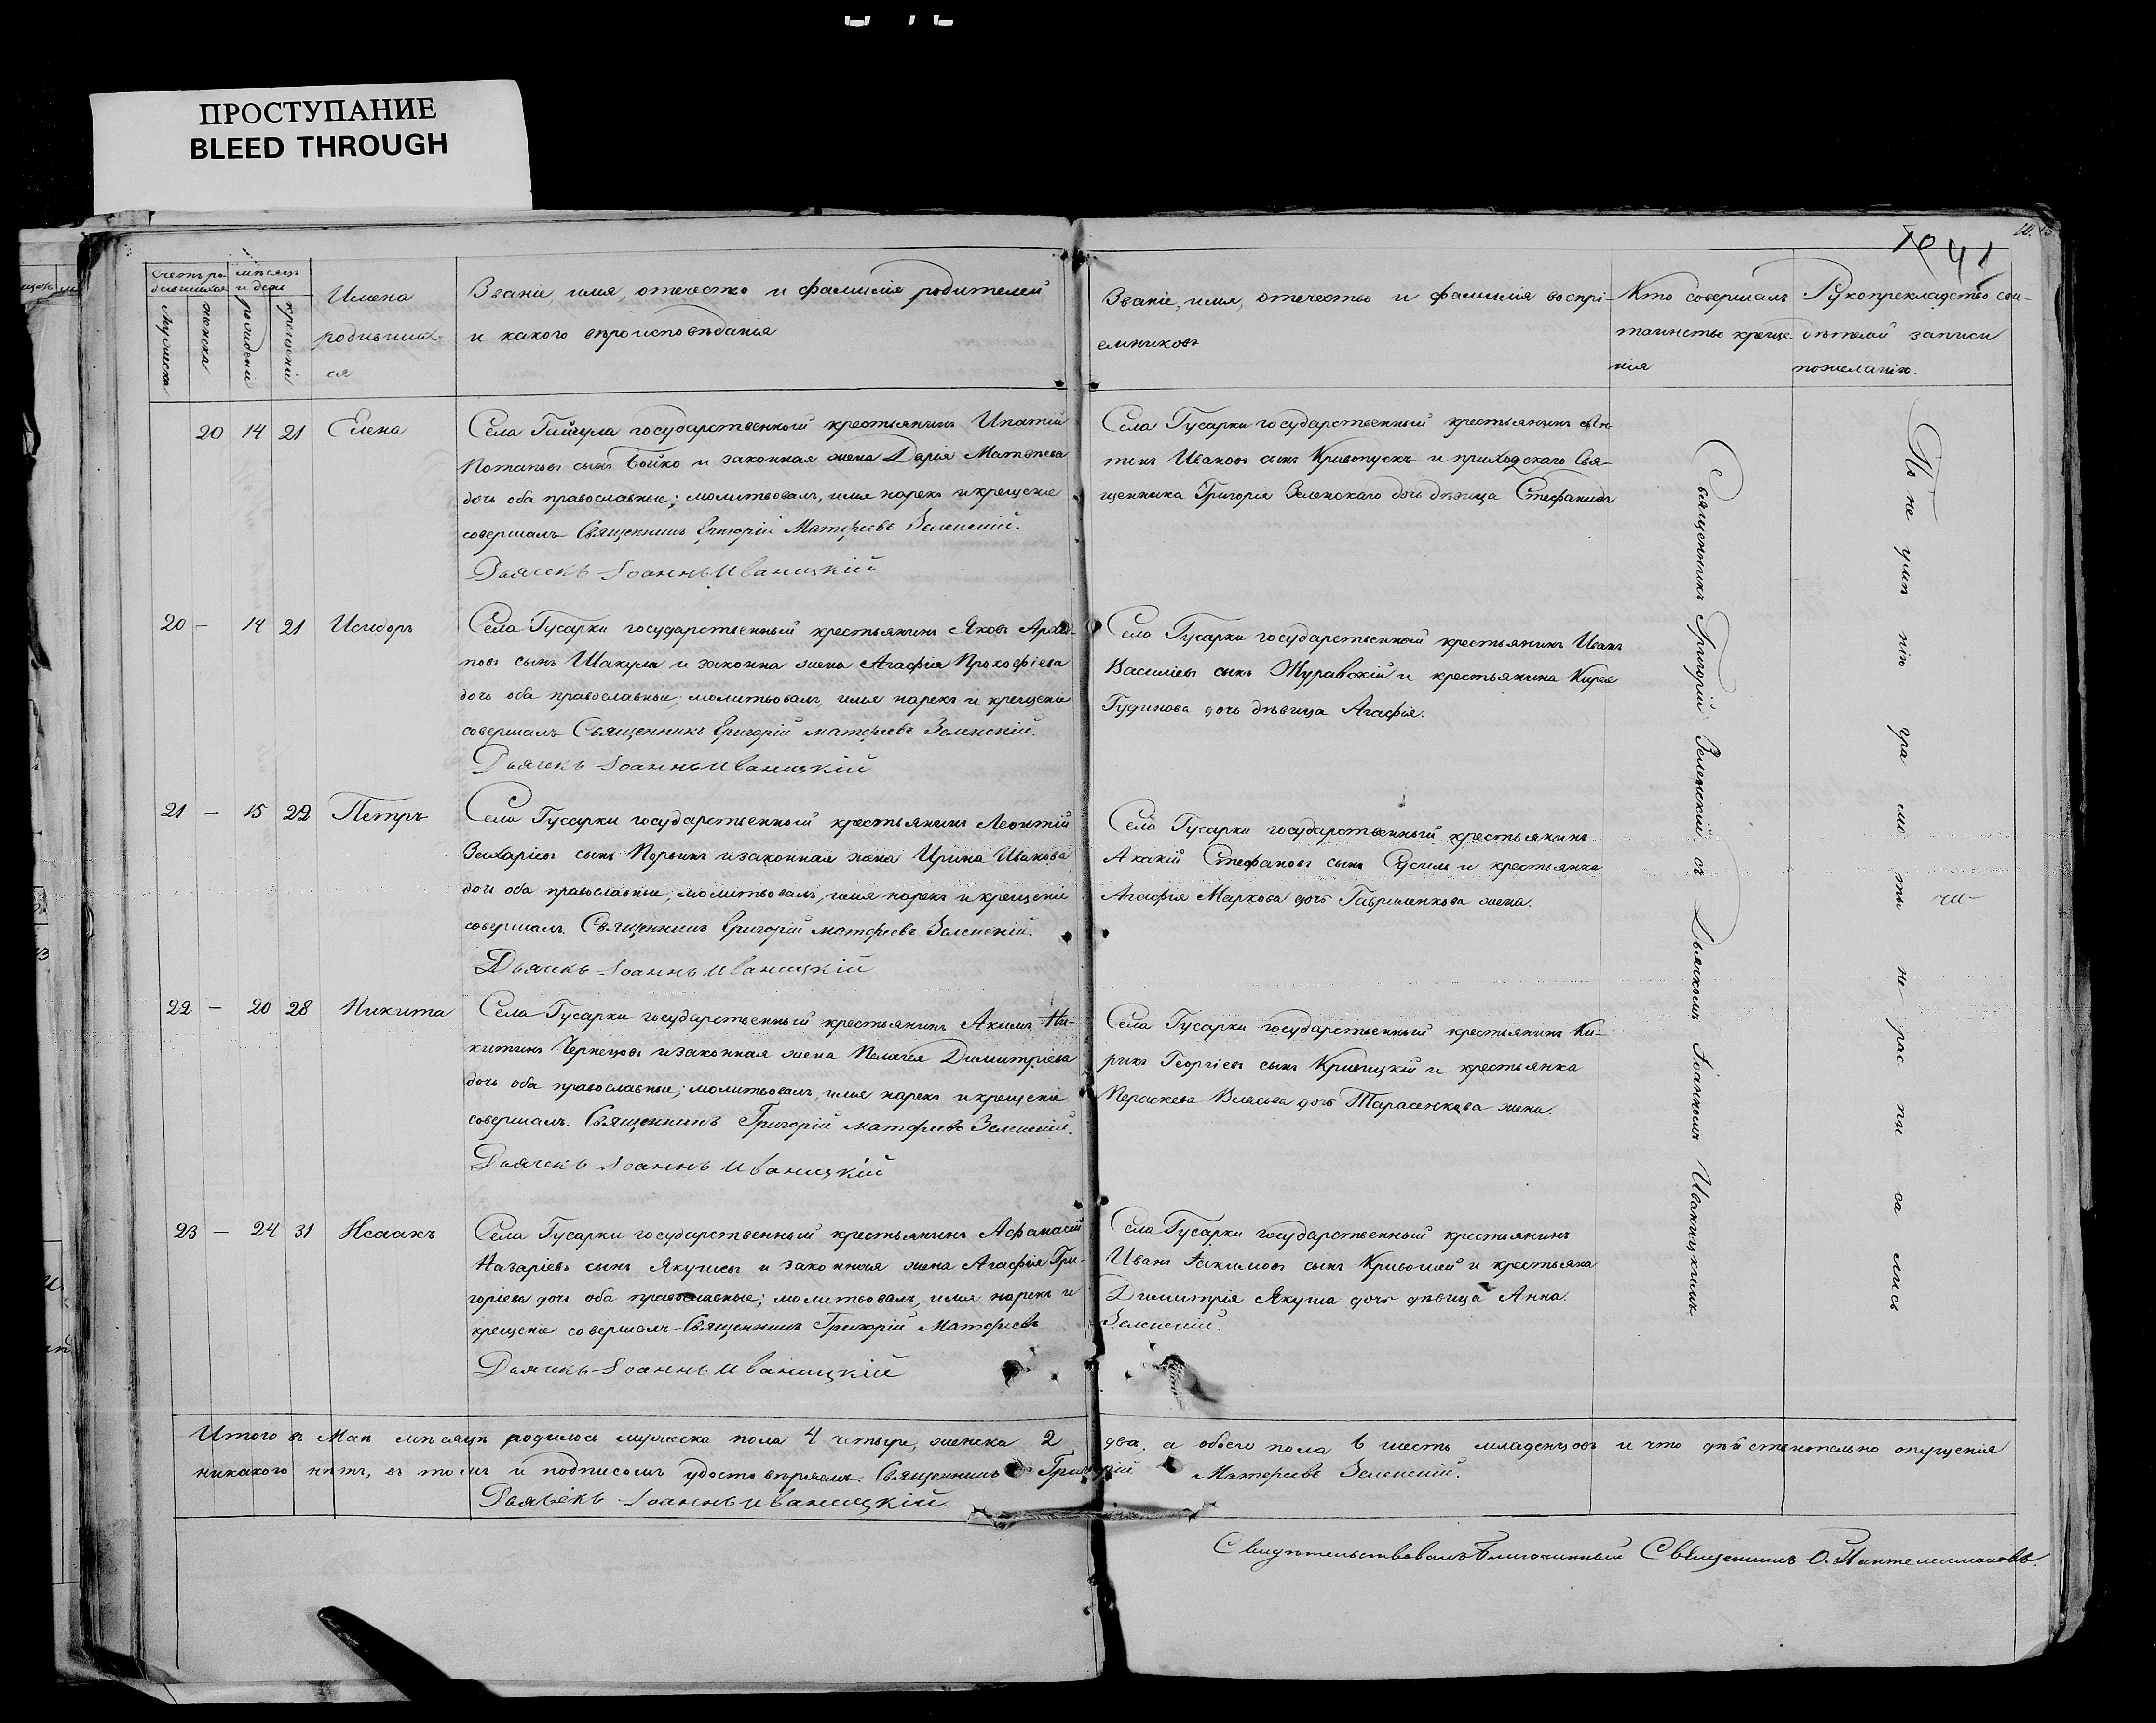 ПРОСТУПАНИЕ
BLEED THROUGH
41
Счетъ ро-
дившихся
мѣсяцъ
и день
мужеска
женска
рожденія
крещенія
Имена
родивших-
ся
Званіе, имя, отечество и фамилія родителей
и какого вѣроисповѣданія
Званіе, имя, отечество и фамилія воспрі-
емниковъ
Кто совершалъ
таинство креще-
нія
Рукоприкладство сви-
дѣтелей записи
по желанію.
20 14 21 Елена
Села государственный крестьянинъ Ипатій
Потаповъ сынъ Бойко и законная жена Дарія Матѳѣева
дочь оба православные; молитвовалъ, имя нарекъ и крещеніе
совершалъ Священникъ Григорій Матфеевъ Зеленскій.
Дьячекъ Іоаннъ Иваницкій
Села Гусарки государственный крестьянинъ Ан-
тонъ Ивановъ сынъ Кривопускъ и приходскаго Свя-
щенника Григорія Зеленскаго дочь дѣвица Стефанида
20 - 14 21 Исидоръ
Села Гусарки государственный крестьянинъ Яковъ Архи-
повъ сынъ Шакула и законна жена Агафія Прокофіева
дочь оба православные; молитвовалъ, имя нарекъ и крещеніе
совершалъ Священникъ Григорій Матфеевъ Зеленскій.
Дьячекъ Іоаннъ Иваницкій
Села Гусарки государственный крестьянинъ Иванъ
Василіевъ сынъ Журавскій и крестьянина Кирея
Гудинова дочь дѣвица Агафія.
21 - 15 22 Петръ
Села Гусарки государственный крестьянинъ Леонтій
Захаріевъ сынъ и законная жена Ирина Иванова
дочь оба православные; молитвовалъ, имя нарекъ и крещеніе
совершалъ Священникъ Григорій Матфеевъ Зеленскій.
Дьячекъ Іоаннъ Иваницкій
Села Гусарки государственный крестьянинъ
Акакій Стефановъ сынъ и крестьянка
Агафія Маркова дочь Гавриленкова жена.
22 - 20 28 Никита
Села Гусарки государственный крестьянинъ Акимъ Ни-
китинъ Чернецовъ и законная жена Пелагея Димитріева
дочь оба православные; молитвовалъ, имя нарекъ и крещеніе
совершалъ. Священникъ Григорій Матфеевъ Зеленскій.
Дьячекъ Іоаннъ Иваницкій
Села Гусарки государственный крестьянинъ Ки-
рикъ Георгіевъ сынъ Кривицкій и крестьянка
Параскева Власова дочь Тарасенкова жена.
23 - 24 31 Исаакъ
Села Гусарки государственный крестьянинъ Афанасій
Назаріевъ сынъ и законная жена Агафія Гри-
горіева дочь оба православные; молитвовалъ, имя нарекъ и
крещеніе совершалъ Священникъ Григорій Матфеевъ
Дьячекъ Іоаннъ Иваницкій
Села Гусарки государственный крестьянинъ
Иванъ Іакимовъ сынъ Кривошей и крестьяна
Димитрія Якуша дочь дѣвица Анна.
Зеленскій.
Священникъ Григорій Зеленскій съ Дьячкомъ Іоанномъ Иваницкимъ
По не умѣ нію гра мо ты не рас пи са лись
Итого въ Маѣ мѣсяцѣ родилось мужеска пола 4 четыре, женска 2 два, а обоего пола 6 шесть младенцовъ и что дѣйствительно опущенія
никакого нѣтъ, въ томъ и подписомъ удостовѣряемъ. Священникъ Григорій Матфеевъ Зеленскій.
Дьячекъ Іоаннъ Иваницкій
Свидѣтельствовалъ Благочинный Священникъ